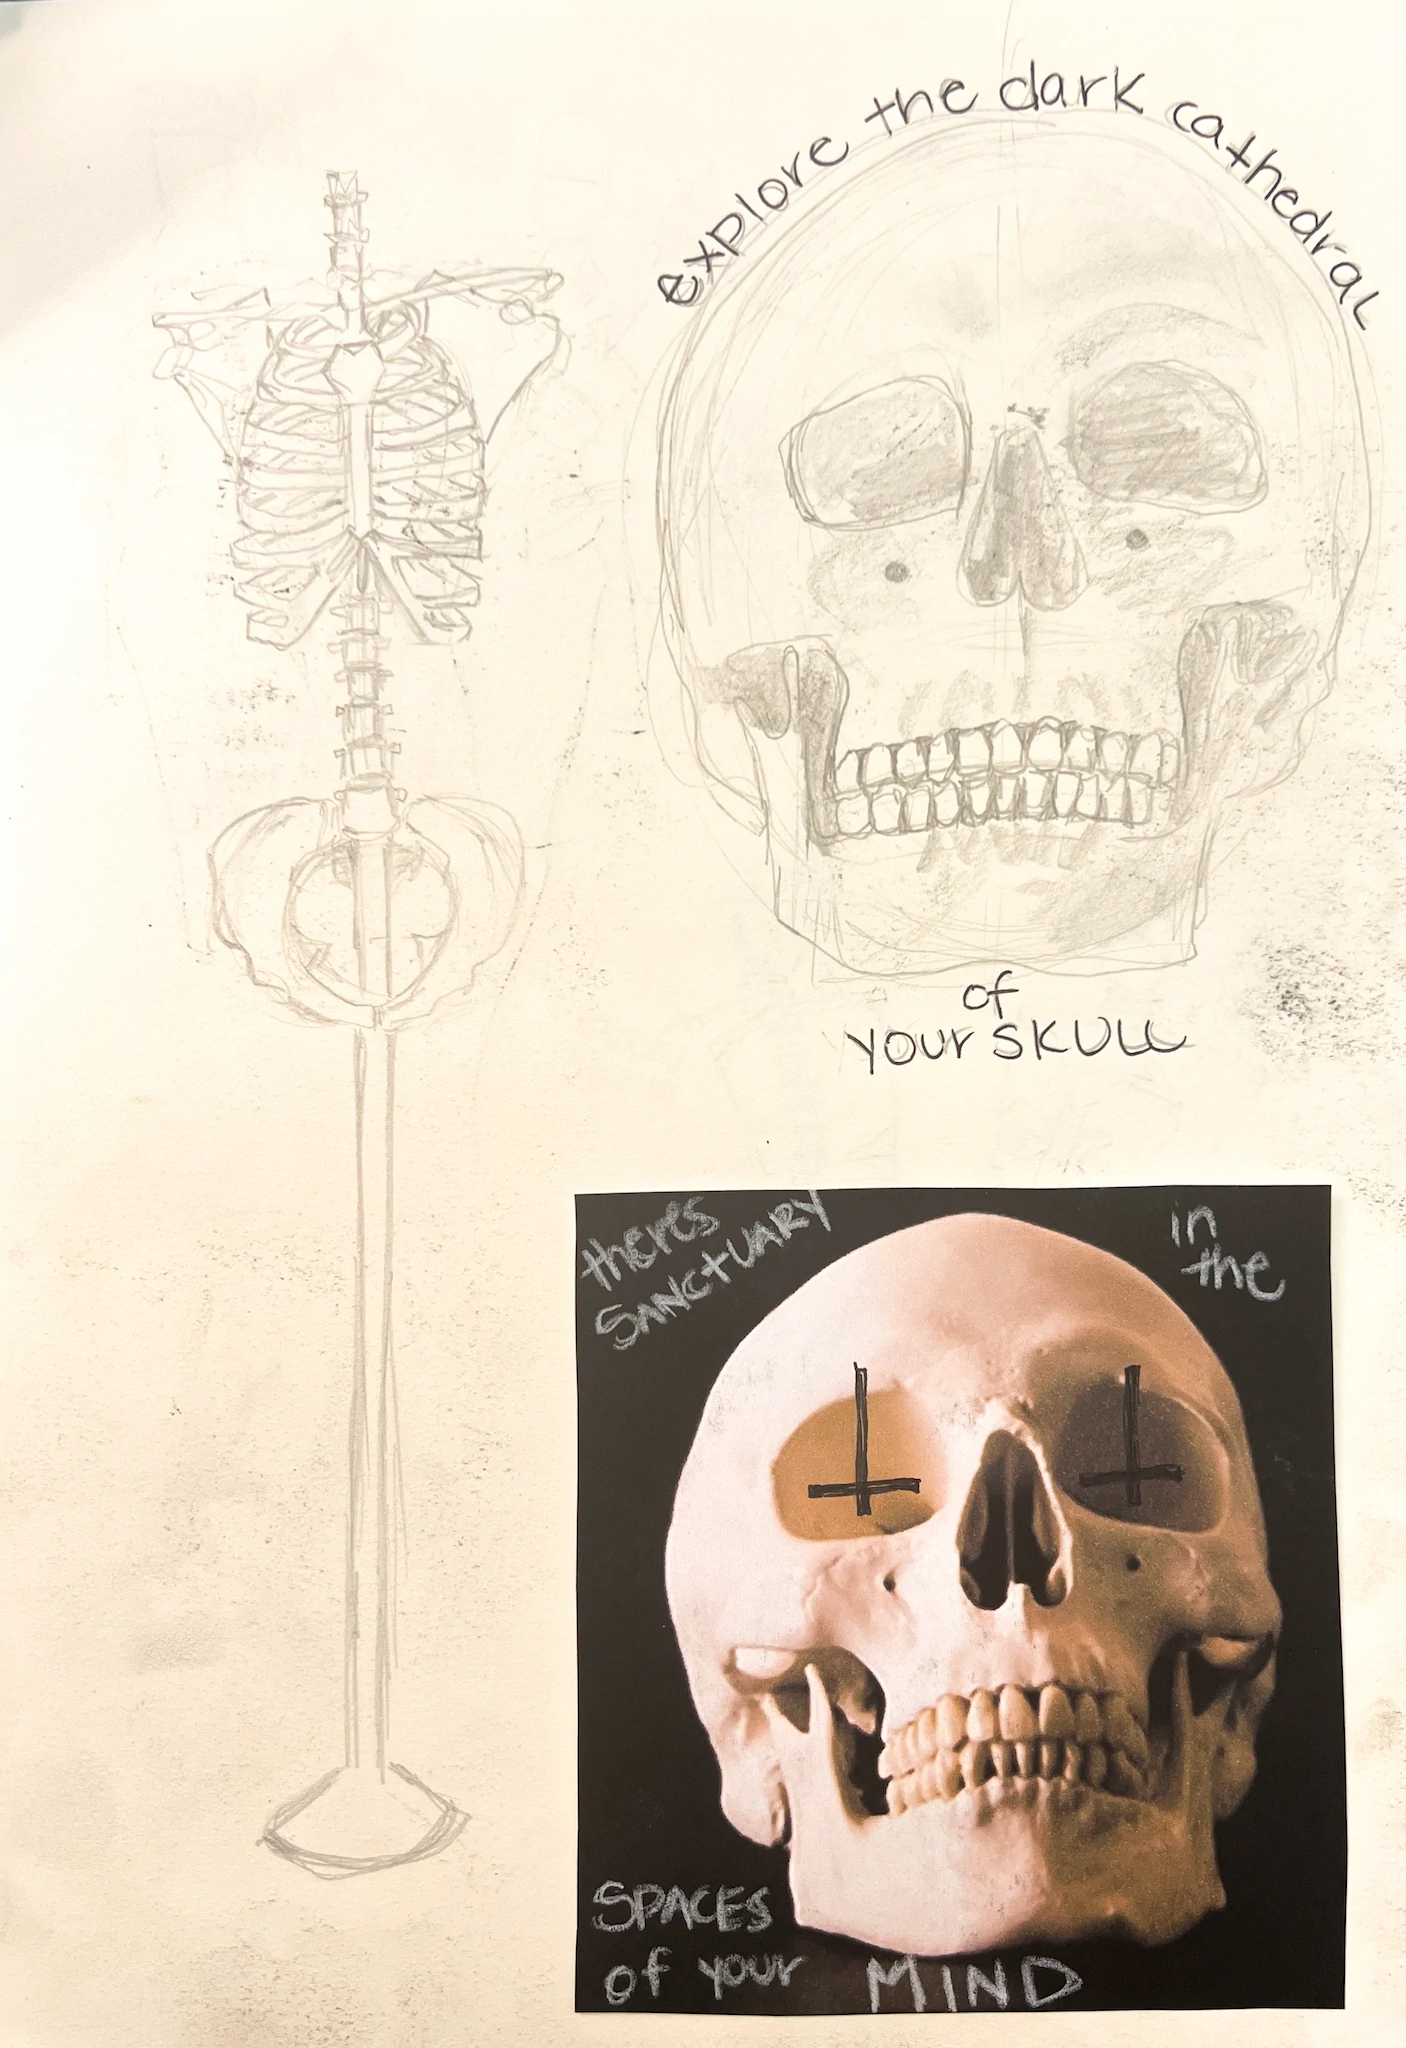 explore the dark cathedral
of
your SKULL
theres
SANCTUARY
in
the
SPACES
of your MIND